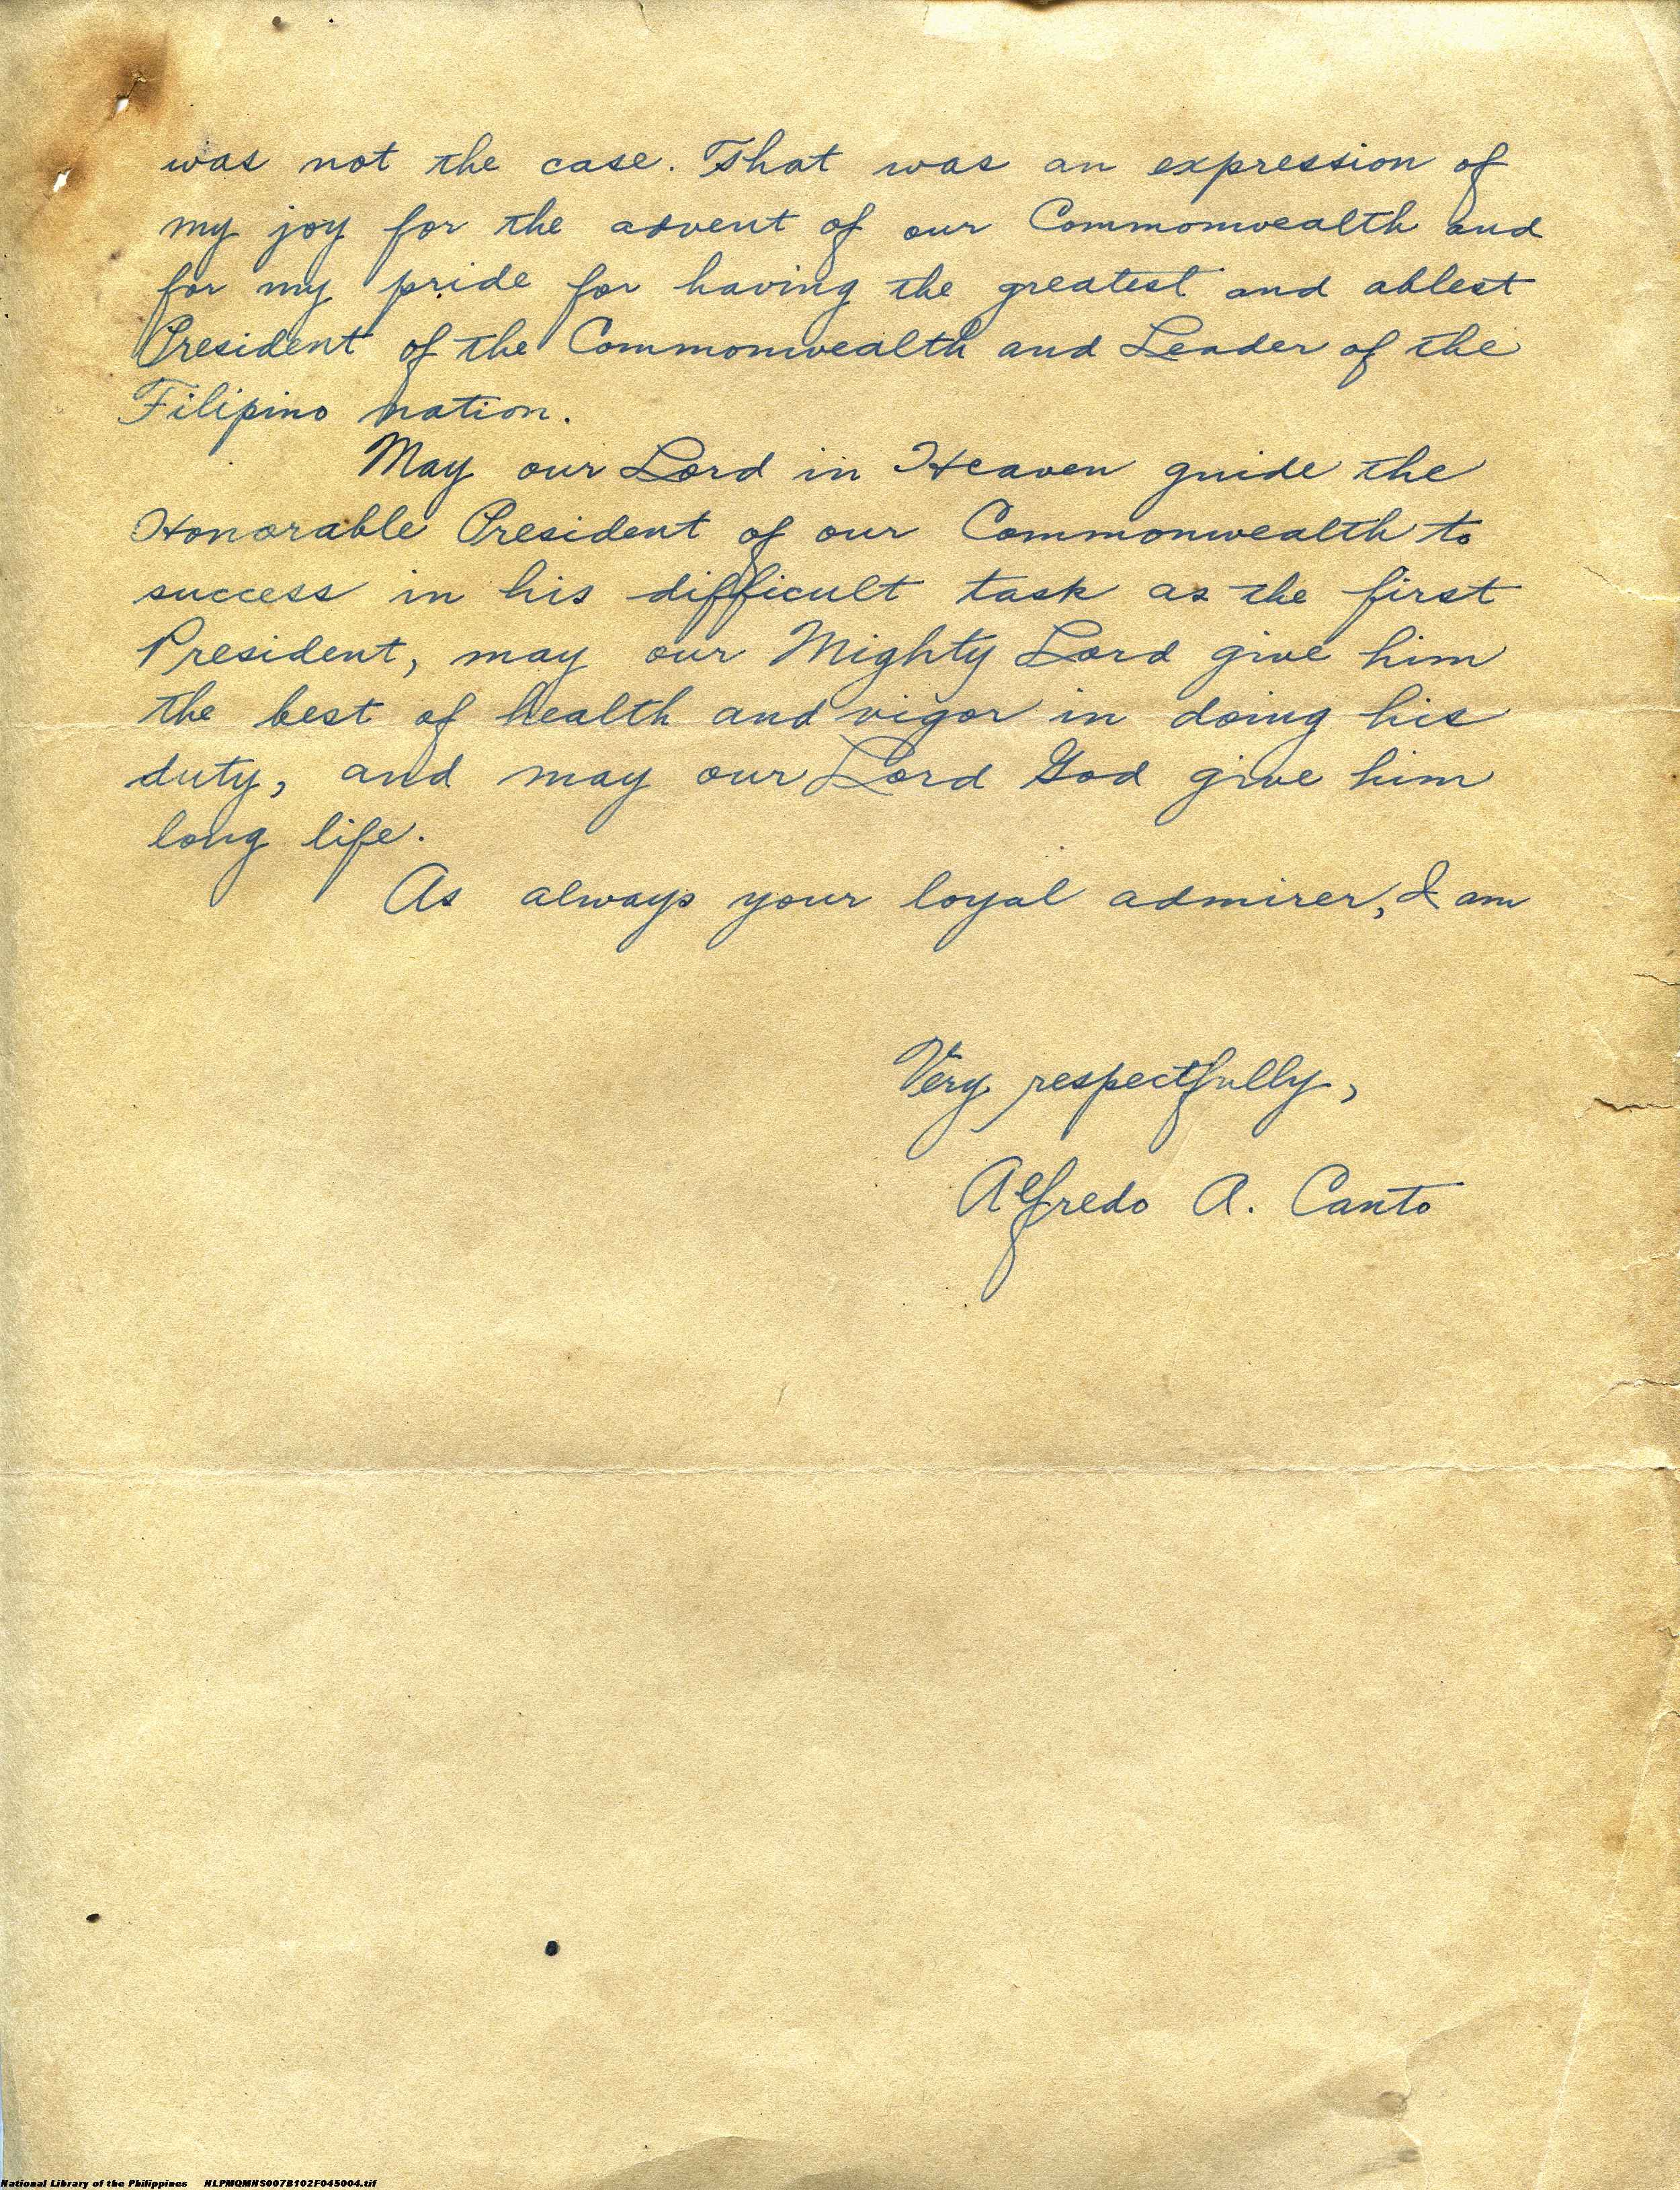 was not the case. That was an expression of
my joy for the advent of our Commonwealth and
for my pride for having the greatest and ablest
President of the Commonwealth and Leader of the
Filipino nation.
May our Lord in Heaven guide the
Honorable President of our Commonwealth to
success in his difficult task as the first
President, may our Mighty Lord give him
the best of health and vigor in doing his
duty, and may our Lord God give him
long life.
As always your loyal admirer, I am
Very respectfully,
Alfredo A. Canto
National Library of the Philippines NLPMQMNS007B102F045004.tif